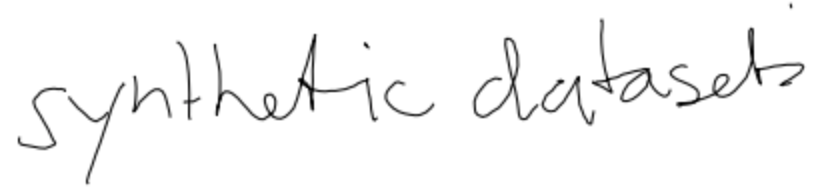 synthetic datasets